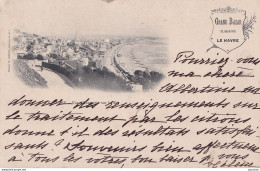 GRAND BAZAR
LE HAVRE
Pourriez-vous
ma chère
Albertine me
donner des renseignements sur
le traitement par les citrons
donne t'il des résultats satisfai
sants? Souvenirs bien affectueux
à tous les vôtres, bon baiser je vous